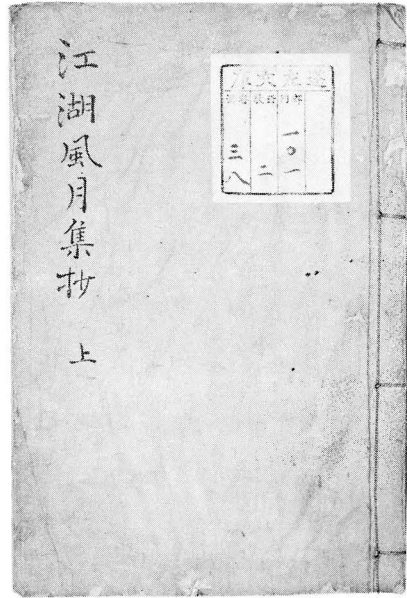 江湖風月集抄 上
一〇一
二
三八